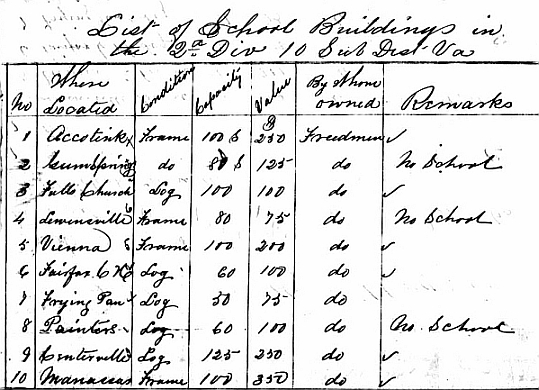 List of School Buildings in
the 2d Div 10 Sub Dist Va
No Where Located Condition Capacity Value By Whome owned Remarks
1 Accotink Frame 100 $ 250 Freedmen ✓
2 Gum Spring do 80 $ 125 do No School
3 Falls Church Log 100 100 do ✓
4 Lewinsville Frame 80 75 do No School
5 Vienna Frame 100 200 do ✓
6 Fairfax C H Log 60 100 do ✓
7 Frying Pan Log 50 75 do
8 Painters Log 60 100 do No School
9 Centerville Log 125 250 do ✓
10 Manassas Frame 100 350 do ✓